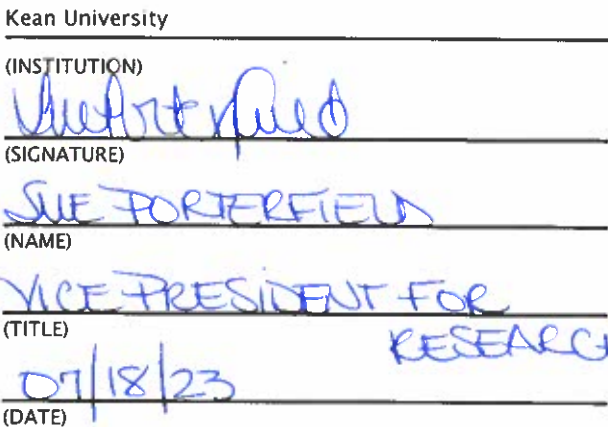 Kean University
(INSTITUTION)
(SIGNATURE)
SUE PORTERFIELD
(NAME)
VICE PRESIDENT FOR
(TITLE)
RESEARCH
07/18/23
(DATE)